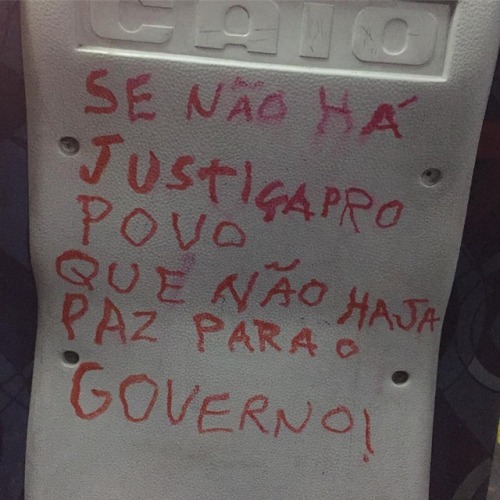 CAIO
SE NÃO HÁ
JUSTIÇA PRO
POVO
QUE NÃO HAJA
PAZ PARA O
GOVERNO!